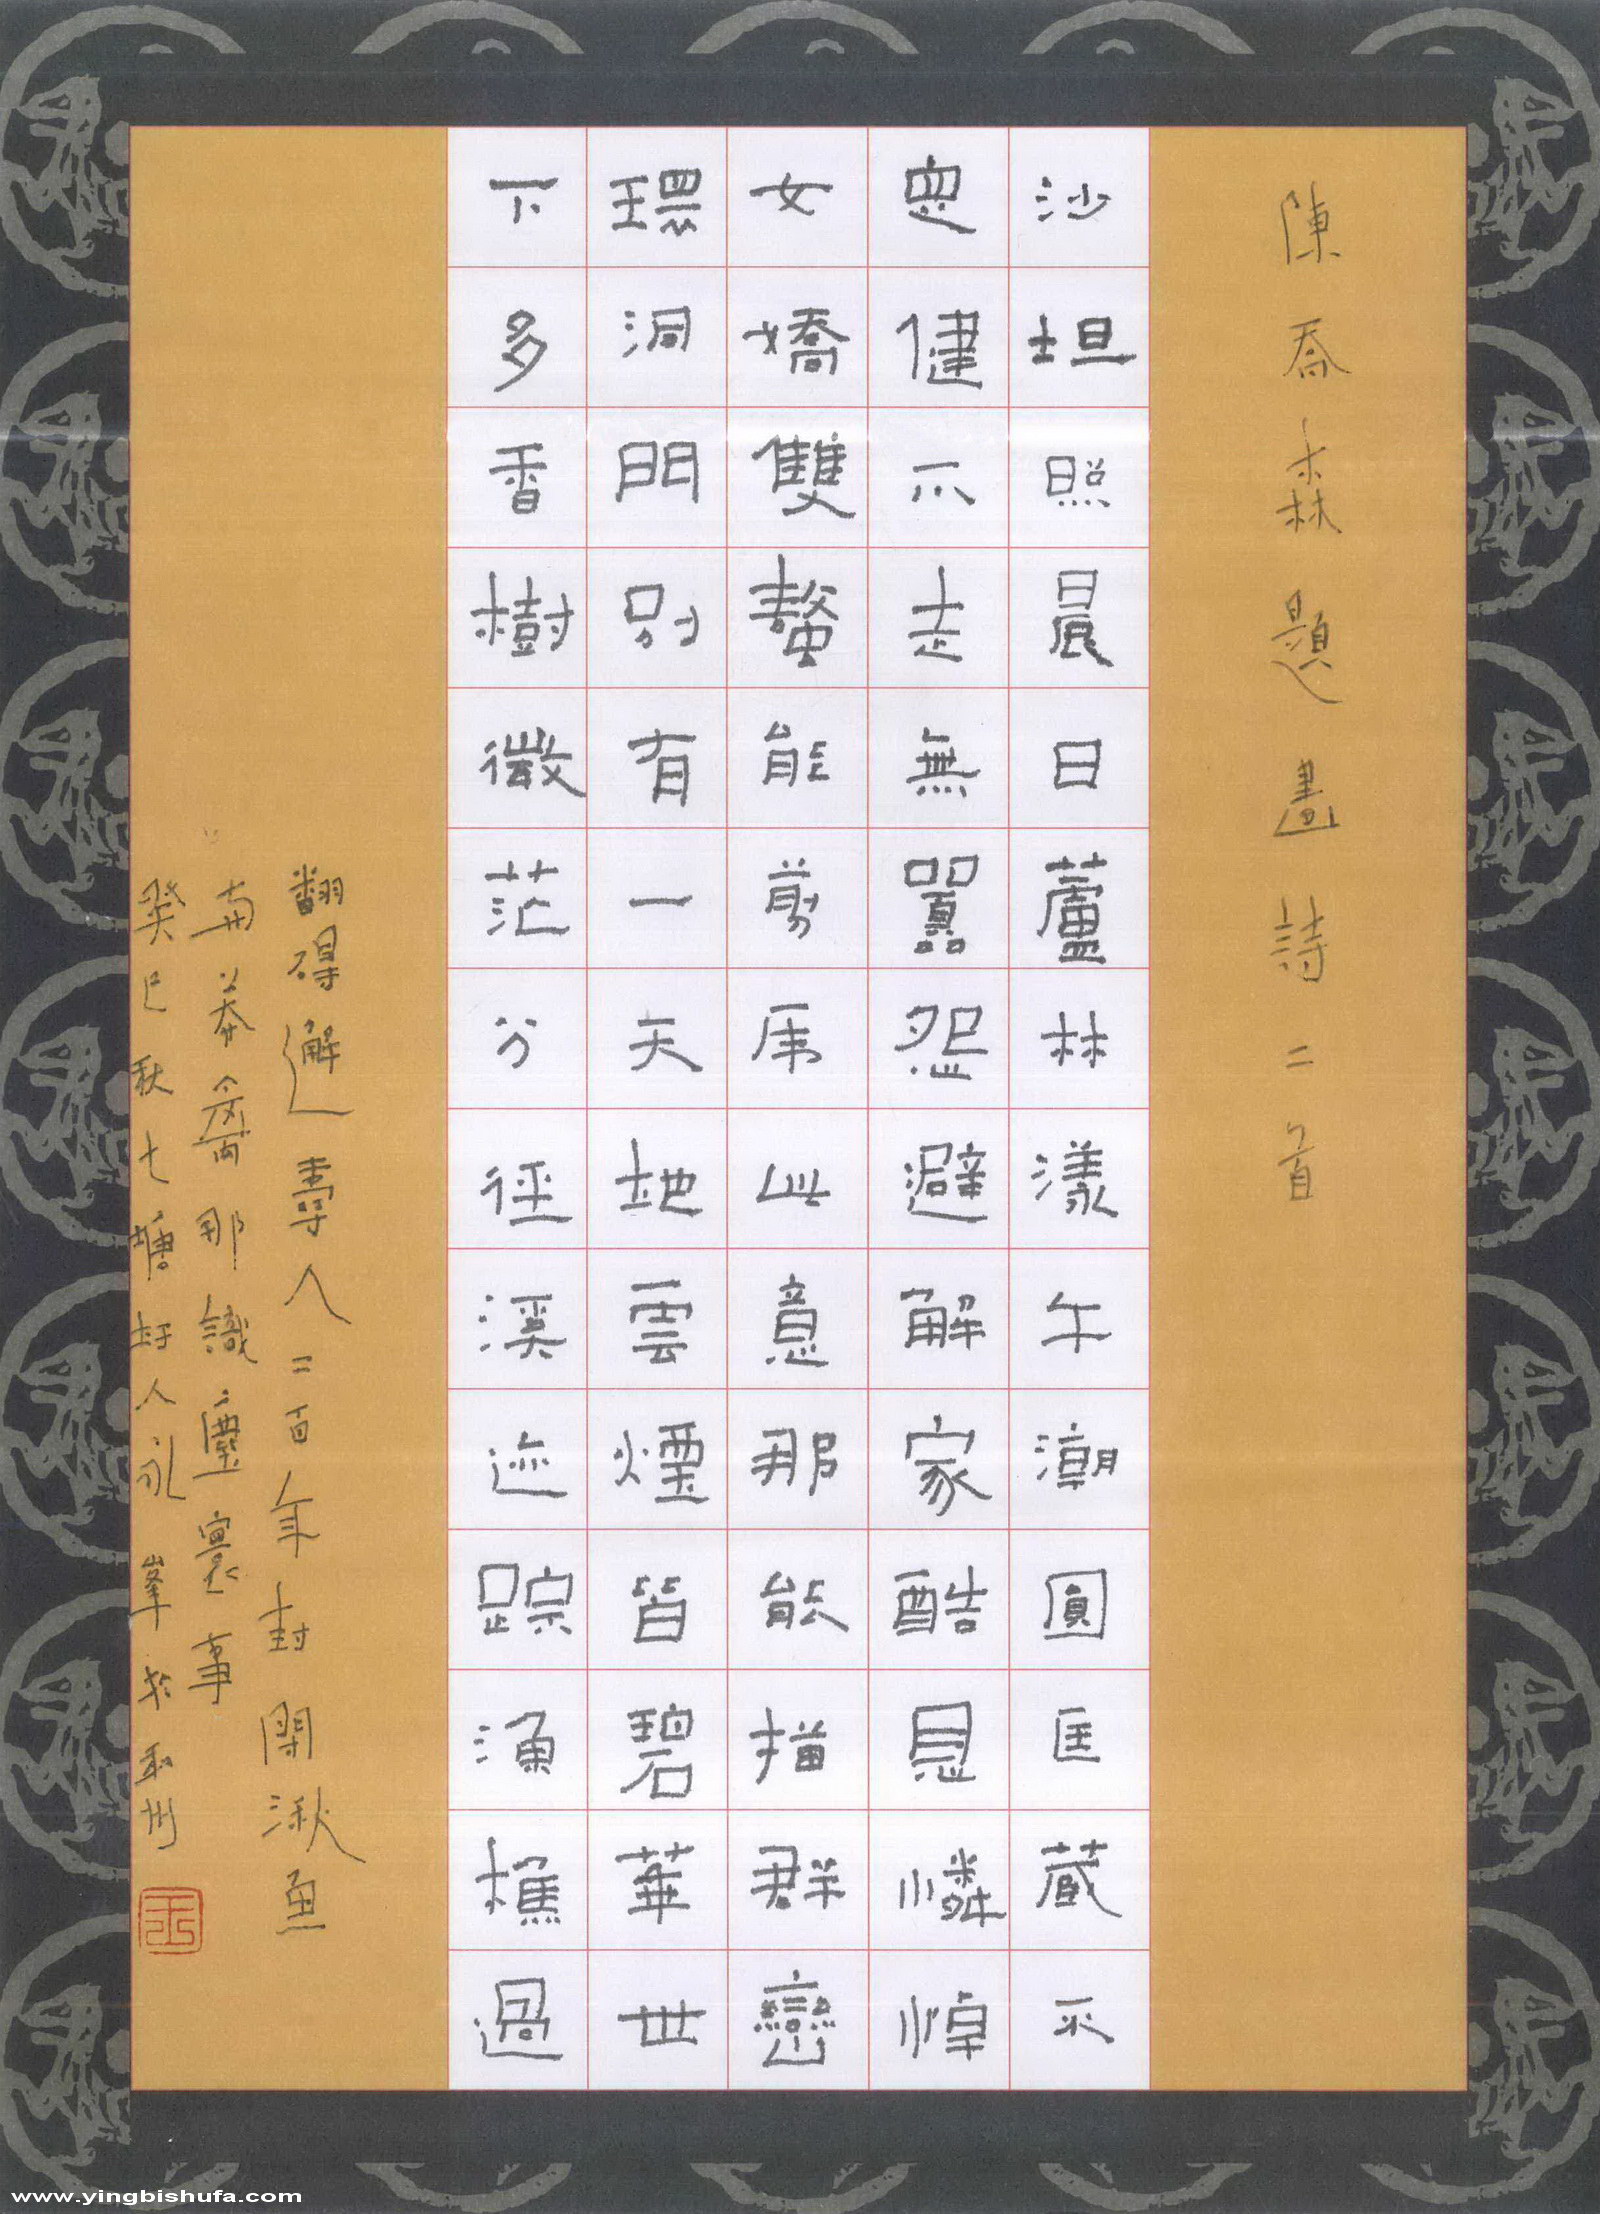 陳喬森題畫詩二首
沙坦照晨日蘆林漾午潮圓匡蔵不
恖健不走無囂怨避解家酷恩憐悼
女嬌雙螯能剪虎此意那能描群巒
環洞門別有一天地雲煙皆碧華世
下多香樹徴茫分徑溪迹踪漁樵過
翻得邂壽人二百年封開湫魚
那識塵寰事
癸巳秋七塘村人永峯於禾州
www.yingbishufa.com